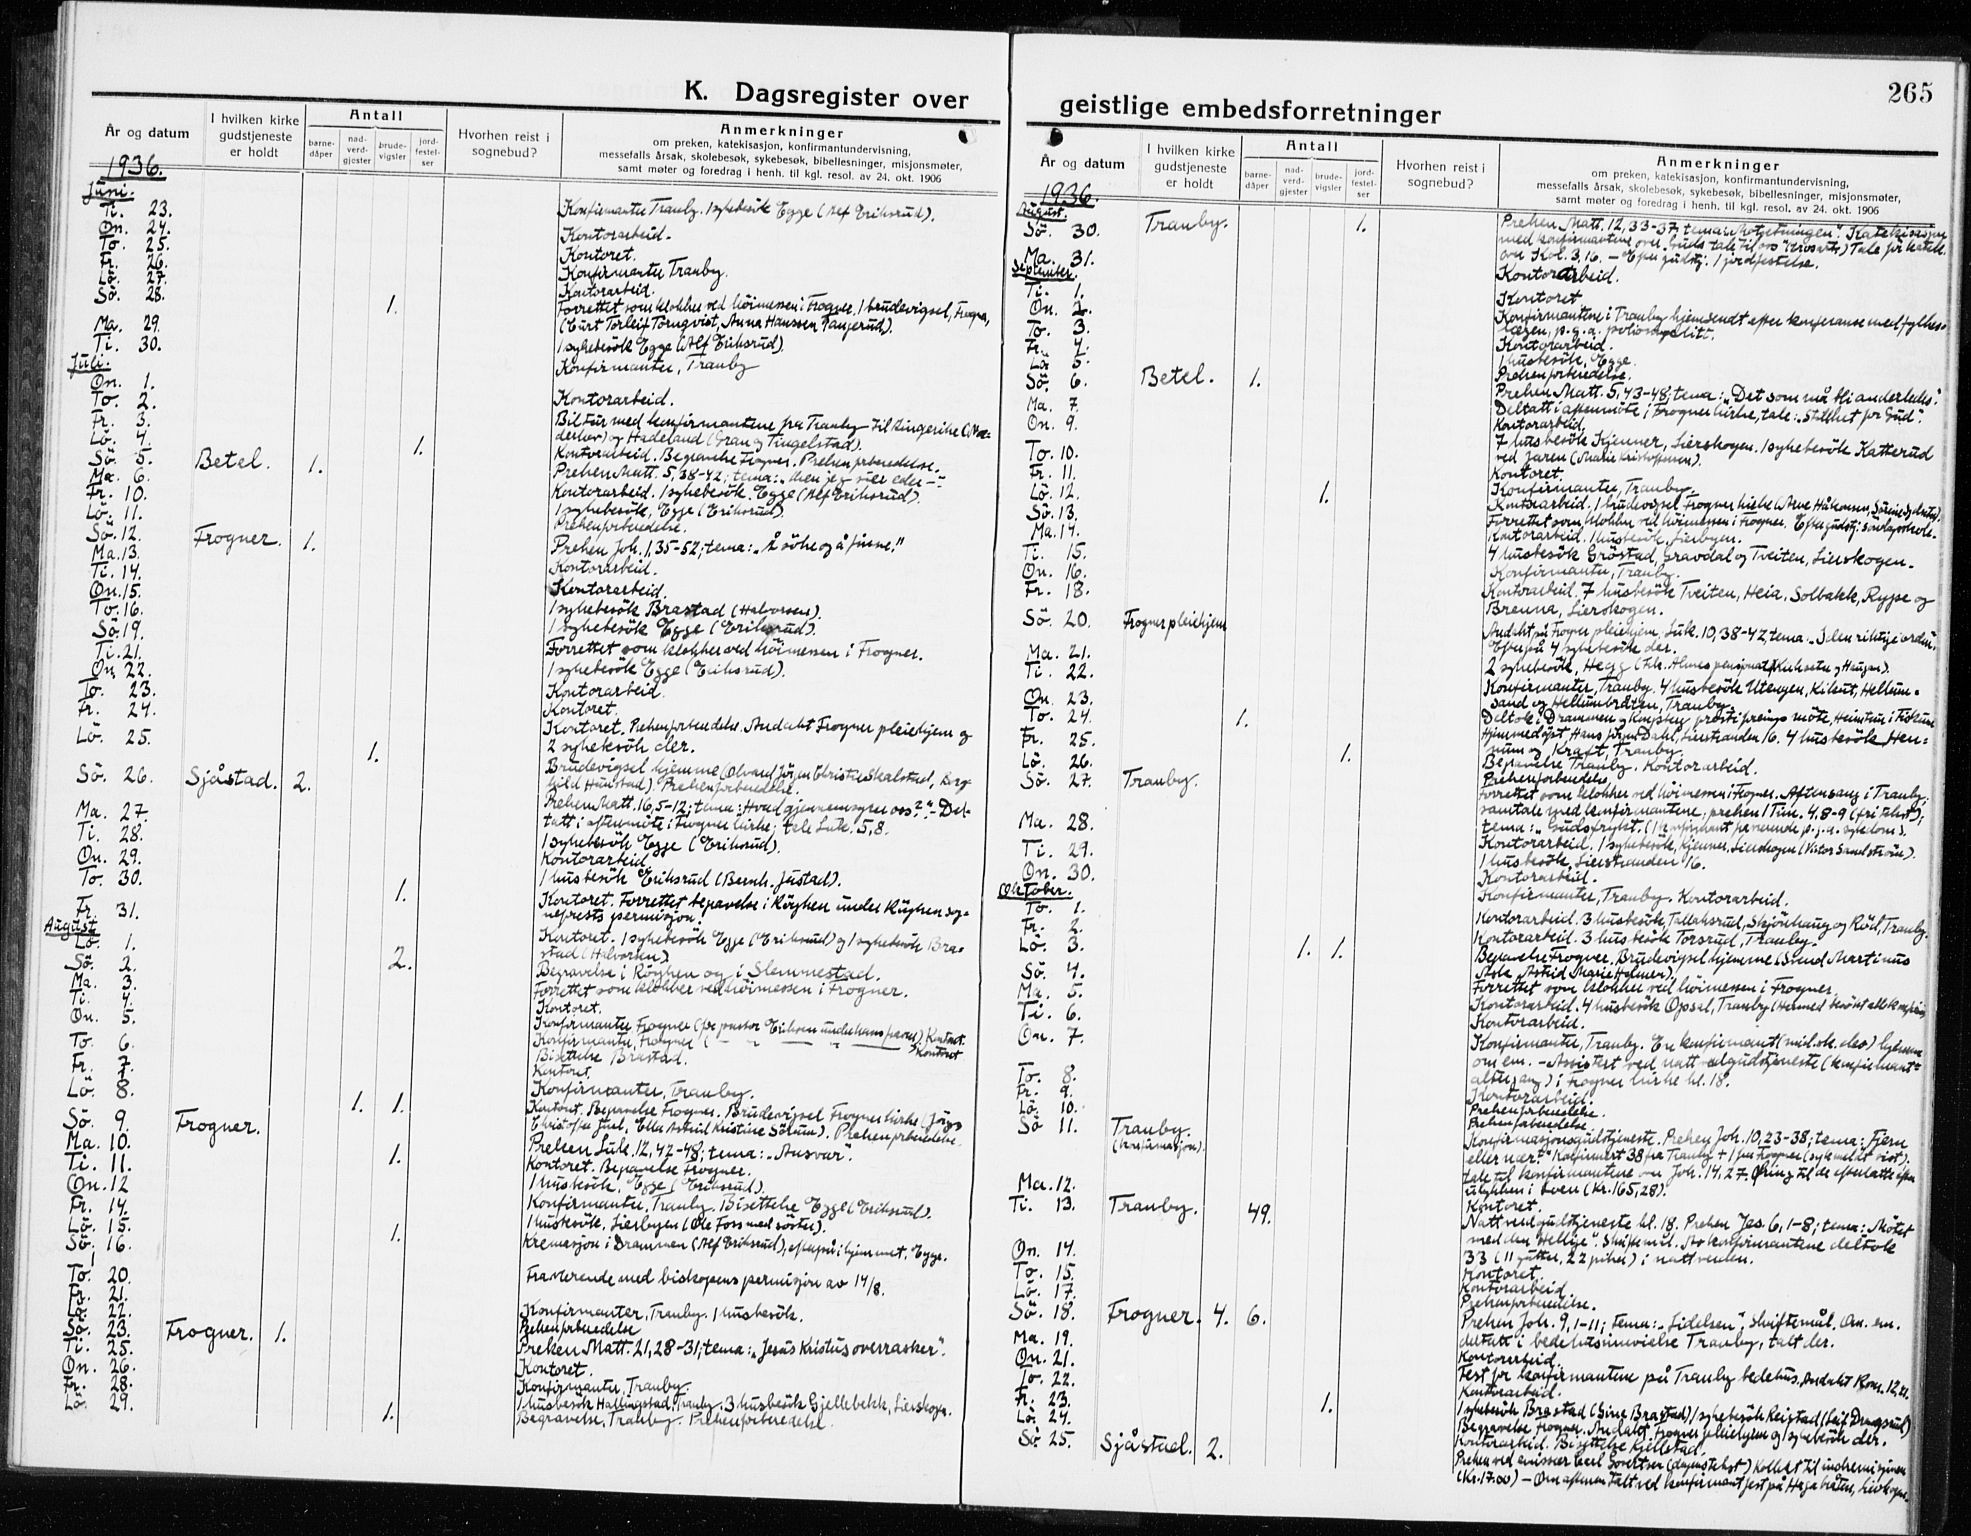 K. Dagsregister over
År og datum
I hvilken kirke
gudstjeneste
er holdt
Antall
barne-
dåper
nad-
verd-
gjester
brude-
vigsler
jord-
festel-
ser
Hvorhen reist i
sognebud?
Anmerkninger
om preken, katekisasjon, konfirmantundervisning,
messefalls årsak, skolebesøk, sykebesøk, bibellesninger, misjonsmøter,
samt møter og foredrag i henh. til kgl. resol. av 24. okt. 1906
1936.
Juni.
Ti. 23. Konfirmanter Tranby. 1 sykebesök Egge (Alf Eriksrud).
On. 24. Kontorarbeid.
To. 25. Kontoret.
Fr. 26. Konfirmanter Tranby.
Lö. 27. Kontorarbeid.
Sö. 28. 1. Forrettet som klokker ved höimessen i Frogner, 1 brudevigsel, Frogner,
(Curt Torleif Törnqvist, Anna Hanssen Tangerud).
Ma. 29. 1 sykebesök Egge (Alf Eriksrud).
Ti. 30. Konfirmanter, Tranby
Juli.
On. 1. Kontorarbeid.
To. 2. Biltur med konfirmantene fra Tranby til Ringerike
Fr. 3. og Hadeland (Gran og Tingelstad).
Lö. 4. 1. Kontorarbeid. Begravelse Frogner. Prekenforberedelse.
Sö. 5. Betel. 1. Preken Matt. 5, 38-42; tema: "Men jeg sier eder —".
Ma. 6. Kontorarbeid. 1 sykebesök, Egge (Alf Eriksrud).
Fr. 10. 1 sykebesök, Egge (Eriksrud).
Lö. 11. Prekenforberedelse.
Sö. 12. Frogner. 1. Preken Joh. 1, 35-52; tema: "Å söke og å finne."
Ma. 13. Kontorarbeid.
Ti. 14. Kontorarbeid.
On. 15. 1 sykebesök Brastad (Halvorsen).
To. 16. 1 sykebesök Egge (Eriksrud).
Sö. 19. Forrettet som klokker ved höimessen i Frogner.
Ti. 21. 1 sykebesök Egge (Eriksrud).
On. 22. Kontorarbeid.
To. 23. Kontoret.
Fr. 24. Kontoret. Prekenforberedelse. Andakt Frogner pleiehjem og
2 sykebesök der.
Lö. 25. 1. Brudevigsel hjemme
Prekenforberedelse.
Sö. 26. Sjåstad. 2. Preken Matt. 16, 5-12; tema: Hvad gjennemsyrer oss?" - Del-
tatt i aftenmöte i Frogner kirke; tale Luk. 5, 8.
Ma. 27. 1 sykebesök Egge (Eriksrud).
Ti. 28. Kontorarbeid.
On. 29. 1 husbesök Eriksrud (Bernh. Justad).
To. 30. 1. Kontoret. Forrettet begravelse i Röyken under Röyken sog-
neprests permisjon.
Fr. 31. Kontoret. 1 sykebesök Egge (Eriksrud) og 1 sykebesök Bra-
stad (Halvorsen).
August
Lö. 1. 2. Begravelse i Röyken og i Slemmestad.
Sö. 2. Forrettet som klokker ved höimessen i Frogner.
Ma. 3. Kontoret.
Ti. 4. Konfirmanter Frogner (for pastor Eriksen under hans fravær). Kontoret.
On. 5. Konfirmanter, Frogner Kontoret
To. 6. Bisettelse Brastad.
Fr. 7. Kontoret.
Lö. 8. Konfirmanter, Tranby.
1. 1. Kontoret. Begravelse Frogner. Brudevigsel Frogner kirke
Prekenforberedelse.
Sö. 9. Frogner. Preken Luk. 12, 42-48; tema: "Ansvar".
Ma. 10. 1. Kontoret. Begravelse Frogner.
Ti. 11. 1 husbesök, Egge (Eriksrud).
On. 12 Konfirmanter, Tranby. Bisettelse Egge (Eriksrud).
Fr. 14. 1 husbesök, Lierbyen (Ole Foss med söster).
Lö. 15. 1. Kremasjon i Drammen (Alf Eriksrud), efterpå i hjemmet, Egge.
Sö. 16. Fraværende med biskopens permisjon av 14/8.
To. 20.
Fr. 21. Konfirmanter, Tranby. 1 husbesök.
Lö. 22. Prekenforberedelse
Sö. 23. Frogner. 1. Preken Matt. 21, 28-31; tema: "Jesus Kristus overrasker".
Ti. 25. Kontoret.
On. 26. Konfirmanter, Tranby.
Fr. 28. 1 husbesök Hallingstad, Tranby. 3 husbesök Gjellebekk, Lierskogn.
Lö. 29. 1. Begravelse, Tranby. Prekenforberedelse.
geistlige embedsforretninger
265
År og datum
I hvilken kirke
gudstjeneste
er holdt
Antall
barne-
dåper
nad-
verd-
gjester
brude-
vigsler
jord-
festel-
ser
Hvorhen reist i
sognebud?
Anmerkninger
om preken, katekisasjon, konfirmantundervisning,
messefalls årsak, skolebesøk, sykebesøk, bibellesninger, misjonsmøter,
samt møter og foredrag i henh. til kgl. resol. av 24. okt. 1906
1936.
August.
Sö. 30. Tranby. 1. Preken Matt. 12, 33-37; tema: Katekisasjon
med konfirmantene over Guds tale til oss Tale for katek.
over Kol. 3, 16. - Efter gudstj. 1 jordfestelse.
Ma. 31. Kontorarbeid.
September.
Ti. 1. Kontoret
On. 2. Konfirmantene i Tranby hjemsendt efter konferanse med fylkes-
lægen, p.g.a. poliomyelitt.
To. 3. Kontorarbeid.
Fr. 4. 1 husbesök, Egge.
Lö. 5. Prekenforberedelse.
Sö. 6. Betel. 1. Preken Matt. 5, 43-48; tema: "Det som må bli anderledes".
Deltatt i aftenmöte i Frogner kirke, tale: "Stillhet for Gud".
Ma. 7. Kontorarbeid,
On. 9. 7 husbesök Kjenner, Lierskogen. 1 sykebesök Katterud
ved Jaren (Marie Kristoffersen).
To. 10. Kontoret.
Fr. 11. Konfirmanter, Tranby.
Lö. 12. 1. Kontorarbeid. 1 brudevigsel Frogner kirke
Sö. 13. Forrettet som klokker ved höimessen i Frogner. Efter gudstj. söndagsskole.
Ma. 14. Kontorarbeid. 1 husbesök, Lierbyen.
Ti. 15. 4 husbesök Gröstad, Gravdal og Tveiten, Lierskogen.
On. 16. Konfirmanter, Tranby.
Fr. 18. Kontorarbeid. 7 husbesök Tveiten, Heia, Solbakk, Rype og
Brenna, Lierskogen.
Sö. 20. Frogner pleiehjem Andakt på Frogner pleiehjem, Luk. 10, 38-42 tema: I den riktige orden.
Efterpå 4 sykebesök der.
Ma. 21. 2 sykebesök, Hegg
Ti. 22. Konfirmanter, Tranby. 4 husbesök Utengen, Kilsut, Hellum-
sand og Hellumbråten, Tranby.
On. 23. Deltok i Drammen og Kongsberg presteforenings möte,
To. 24. 1. Hjemmedöpt Hans Jörgen Dahl, Lierstranden 16. 4 husbesök Hen-
num og Kraft, Tranby.
Fr. 25. 1. Begravelse Tranby. Kontorarbeid.
Lö. 26. Prekenforberedelse.
Sö. 27. Tranby. Forrettet som klokker ved höimessen i Frogner. Aftensang i Tranby,
samtale med konfirmantene, preken 1 Tim. 4, 8-9 (fri tekst);
tema: "Gudsfrykt". (1 konfirmant fraværende p.g.a. sykdom).
Ma. 28. Kontorarbeid. 1 sykebesök, Kjenner, Lierskogen (Victor Sandström).
Ti. 29. 1 husbesök, Lierstranden 16.
On. 30. Kontorarbeid.
Oktober.
Konfirmanter, Tranby. Kontorarbeid.
To. 1. Kontorarbeid. 3 husbesök Tveitaksrud, Skjönhaug og Röd, Tranby.
Fr. 2. Kontorarbeid. 3 husbesök Torsrud, Tranby.
Lö. 3. 1. 1. Begravelse Frogner. Brudevigsel hjemme (Svend Martinus
Ask, Astrid Marie Holmen).
Sö. 4. Forrettet som klokker ved höimessen i Frogner.
Ma. 5. Kontorarbeid. 4 husbesök Opsal, Tranby
Ti. 6. Kontorarbeid.
On. 7. Konfirmanter, Tranby. En konfirmant
om em. - Assistert ved nattverdgudstjeneste (konfirmant-
altergang) i Frogner kirke kl. 18.
To. 8. Kontorarbeid.
Fr. 9. Prekenforberedelse.
Lö. 10. Prekenforberedelse.
Sö 11. Tranby.
(konfirmasjon). Konfirmasjonsgudstjeneste. Preken Joh. 10, 23-38; tema: Fjern
eller nær?" Konfirmert 38 fra Tranby + 1 fra Frogner
tale til konfirmantene over Joh. 14, 27. Ofring til de efterlatte efter
ulykken i Loen (kr. 165,28).
Ma. 12. Kontoret.
Ti. 13. Tranby. 49. Nattverdgudstjeneste kl. 18. Preken Jes. 6, 1-8; tema: Mötet
med den Hellige". Skriftemål. Av konfirmantene deltok
33 (11 gutter, 22 piker) i nattverden.
On. 14. Kontoret.
To. 15. Kontorarbeid
Lö. 17. Prekenforberedelse.
Sö. 18. Frogner. 4. 6. Preken Joh. 9, 1-11; tema: "Lidelsen", skriftemål. Om em.
deltatt i bedehusinnvielse Tranby, talt der.
Ma. 19. Kontorarbeid.
On. 21. Fest for konfirmantene på Tranby bedehus. Andakt Rom. 12,21.
To. 22. Kontorarbeid.
Fr. 23. 1 sykebesök Brastad (Sine Brastad) 1 sykebesök Reistad
Lö. 24. 1. Begravelse Frogner. Andakt Frogner pleiehjem og sykebesök der.
Kontorarbeid. Bisettelse Kjellstad.
Sö 25. Sjåstad. 2. Preken ved emissær (dagens tekst) kollekt til indremisjonen
(Kr. 17.00) - Om aftenen talt ved konfirmantfest på Hegg bråten, Lierskogn.